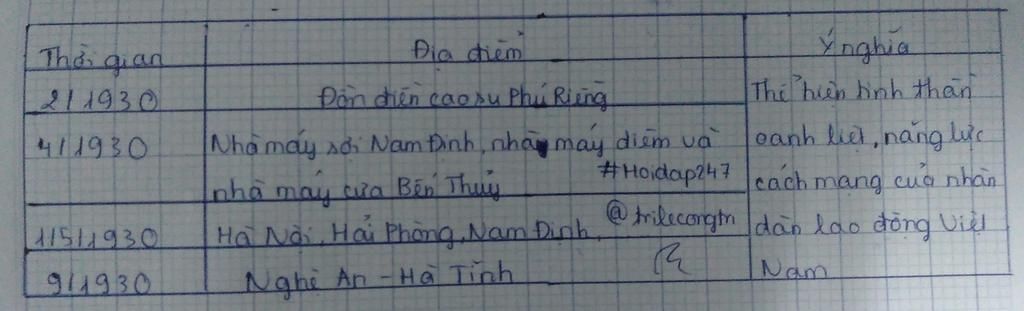 Thời gian Địa điểm Ý nghĩa
2/1930 Đồn điền cao su Phú Riềng Thể hiện tinh thần
4/1930 Nhà máy sợi Nam Định, nhà máy diêm và oanh liệt, năng lực
nhà máy cưa Bến Thuỷ #Hoidap247 cách mạng của nhân
1/5/1930 Hà Nội, Hải Phòng, Nam Định @trilecongtm dân lao động Việt
9/1930 Nghệ An - Hà Tĩnh Nam